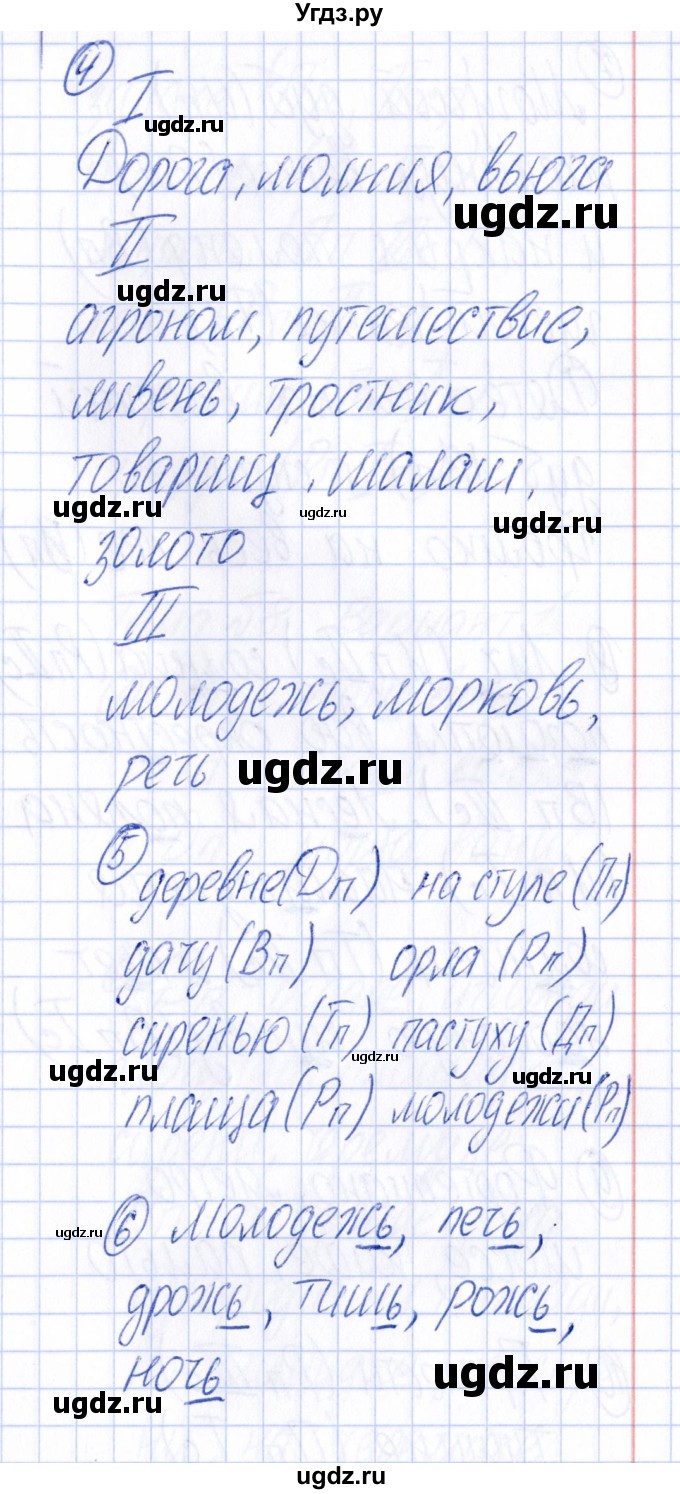 Угдз.ру
4
I
ugdz.ru
Дорога, молния, вьюга
ugdz.ru
II
ugdz.ru
агроном, путешествие,
ливень, тростник,
товарищ, шалаш,
ugdz.ru ugdz.ru ugdz.ru
золото
III
молодежь, морковь,
речь ugdz.ru
5
деревне (Дп) на стуле (Пп)
дачу (Вп) орла (Рп)
сиренью (Тп) пастуху (Дп)
ugdz.ru ugdz.ru ugdz.ru
плаща (Рп) молодежи (Рп)
ugdz.ru 6 Молодежь, печь,
дрожь, тишь, рожь,
ночь ugdz.ru
ugdz.ru
ugdz.ru